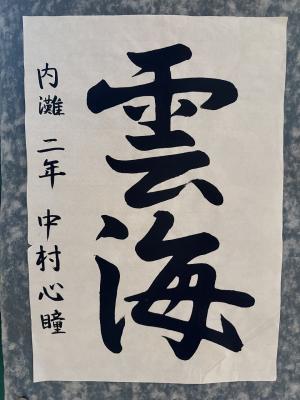 雲海
内灘 二年 中村心瞳